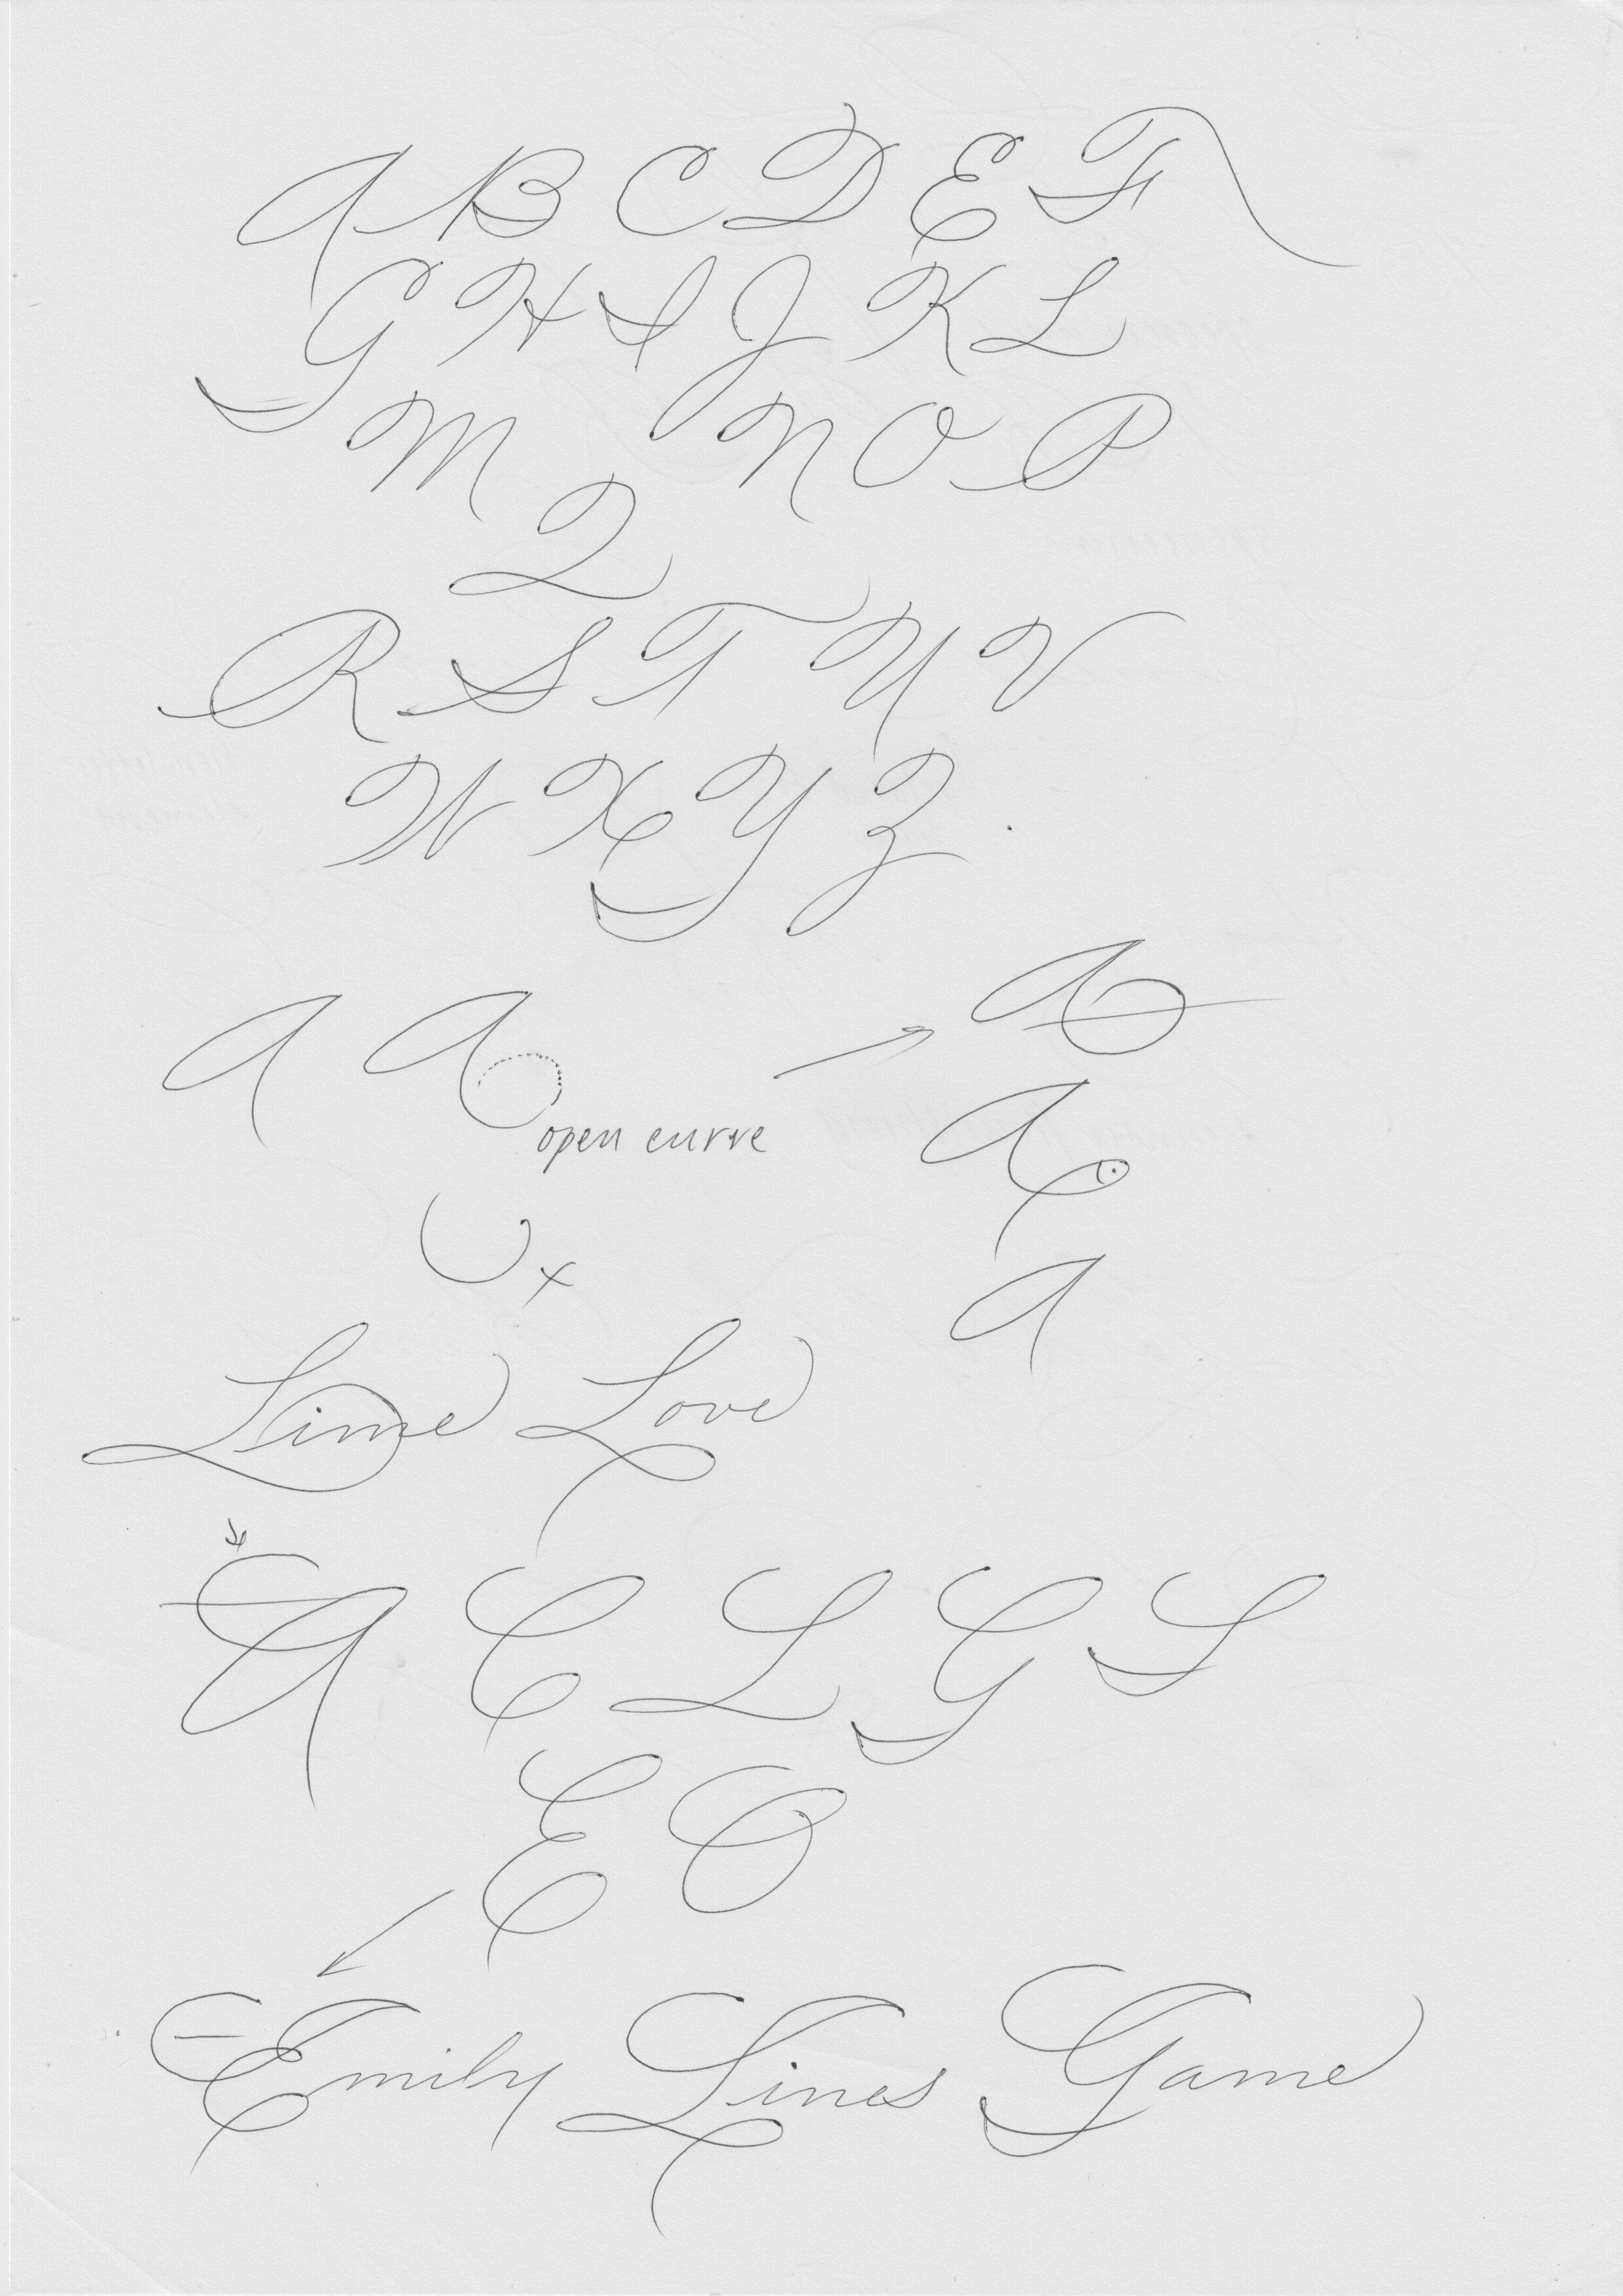 A B C D E F
G H I J K L
M N O P
Q
R S T U V
W X Y Z
A A A
open curve
A
x
A
Lime Love
A C L G S
E O
Emily Lines Game